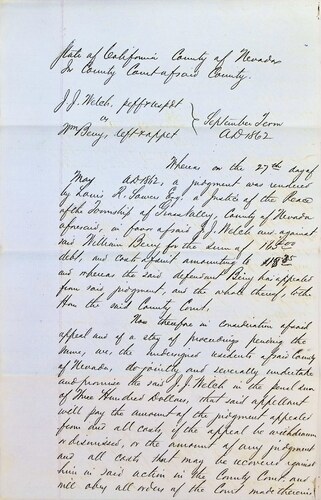 State of California County of Nevada
In County Court afsaid County.
J. J. Welch, plff & respdt
vs
Wm Berry, deft & appet
September Term
A.D. 1862
Whereas on the 27th day of
May A.D. 1862, a judgment was rendered
by Louis R. Sowers Esq. a Justice of the Peace
of the Township of Grass Valley, County of Nevada
aforesaid, in favor afsaid J. J. Welch and against
said William Berry for the sum of
debt, and costs of suit amounting to
and whereas the said defendant Berry has appealed
from said judgment, and the whole thereof, to the
Hon the said County Court,
Now therefore in consideration afsaid
appeal and of a stay of proceedings pending the
same, we, the undersigned residents afsaid County
of Nevada, do jointly and severally undertake
and promise the said J. J. Welch in the penal sum
of Three Hundred Dollars, that said appellant
will pay the amount of the judgment appealed
from and all costs, if the appeal be withdrawn
or dismissed, or the amount of any judgment
and all costs that may be recovered against
him in said action in the County Court and
will obey all orders of the Court made therein